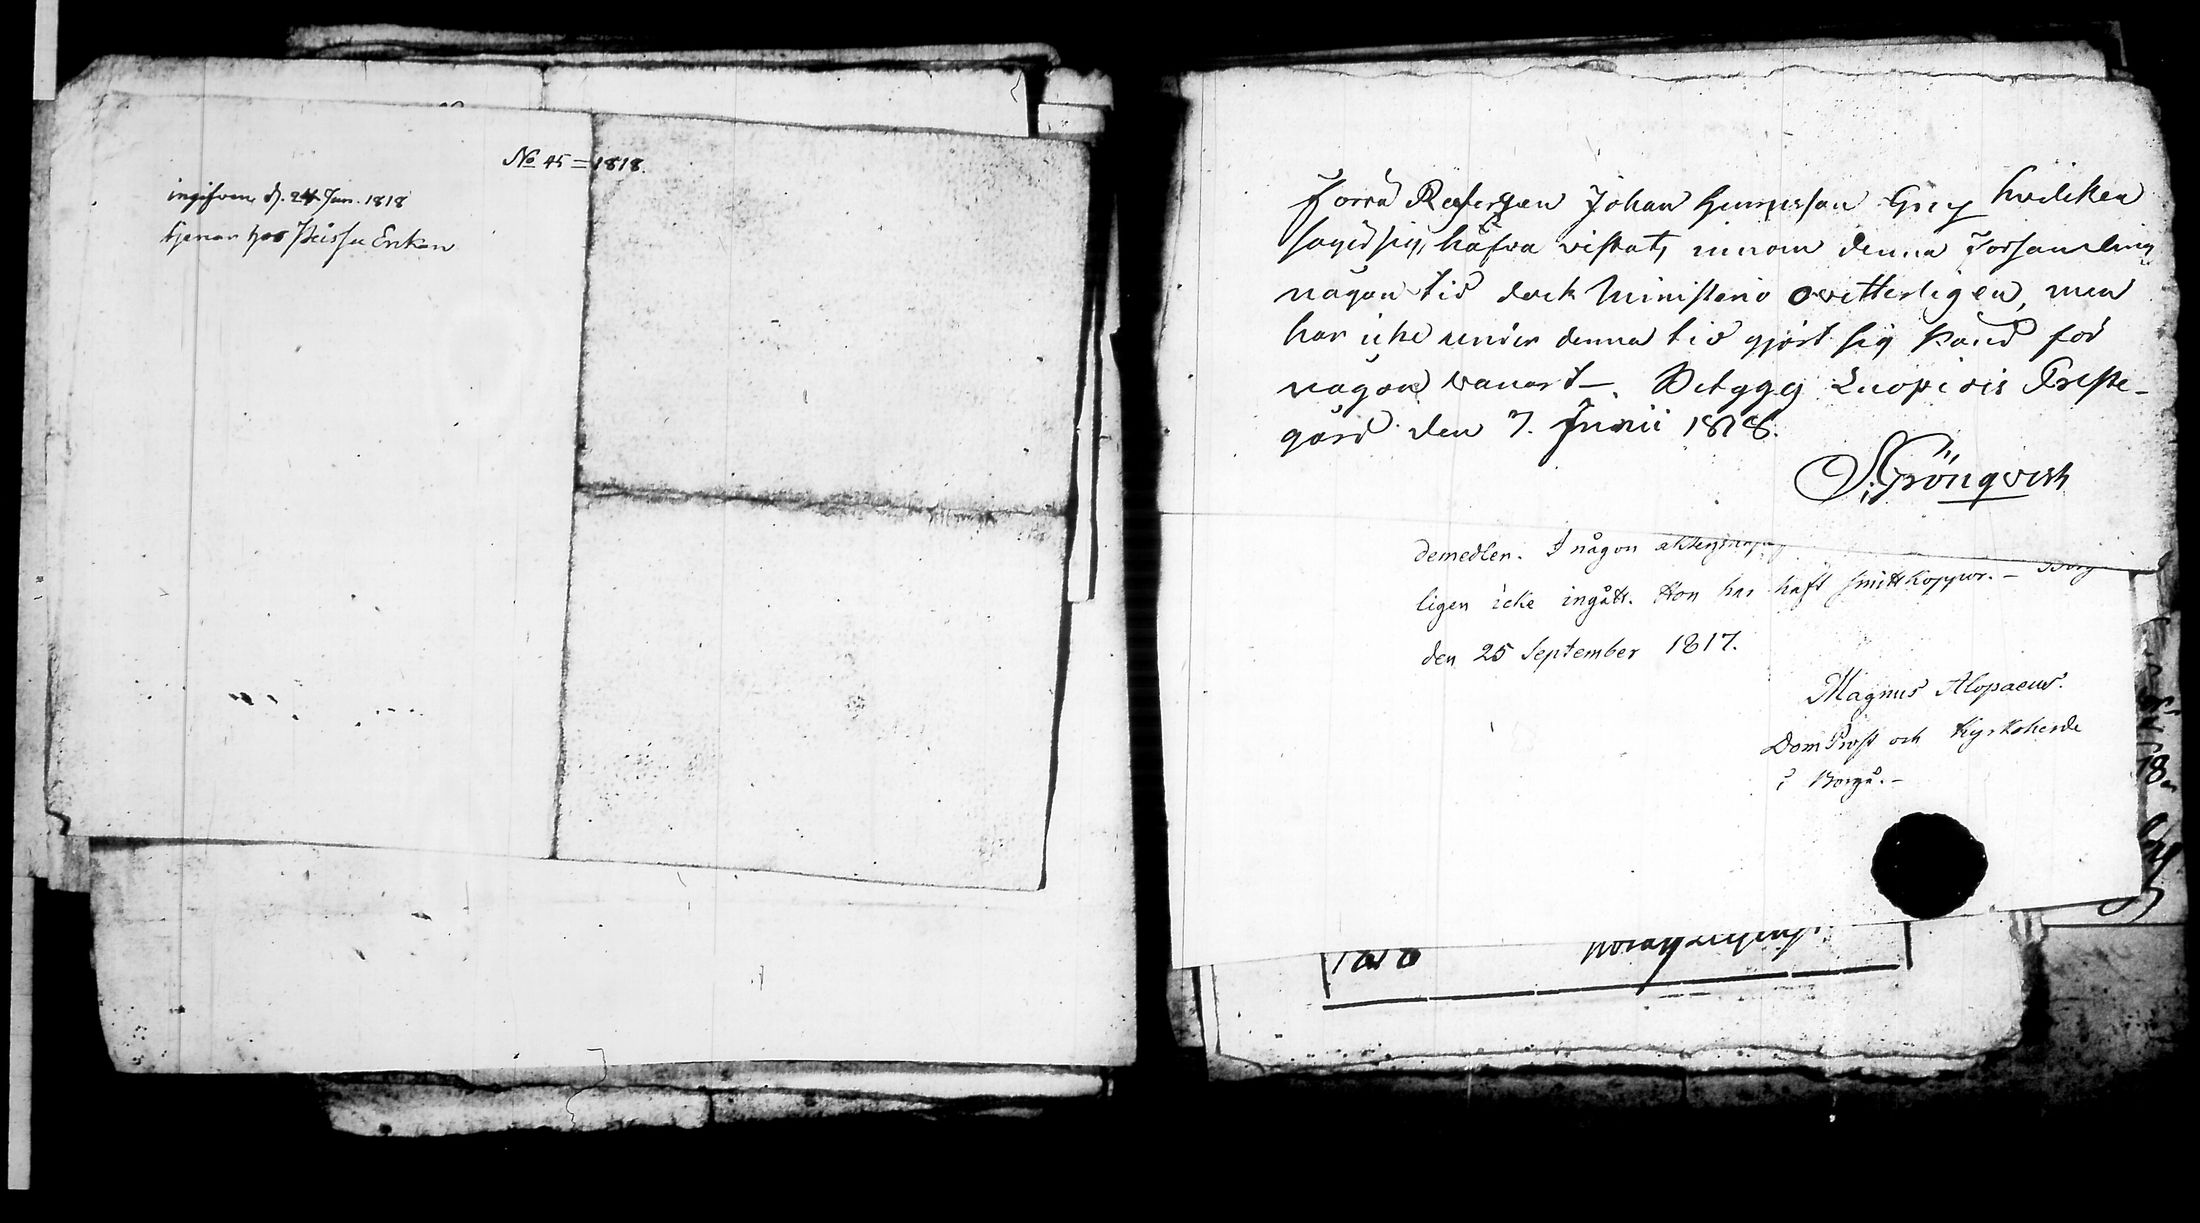 No 45 = 1818.
ingifven d. 24 Jan. 1818
tjenar hos Enkan
Förra Johan Grey hvilken
sagd sig, hafva vistats innom denna Forsamling
någon tid dock Ministerio ovetterligen, men
har icke under denna tid gjort sig känd for
någon vanart —. Betygg Luopiois Preste-
gård den 7. Junii 1818.
S. Grönqvist
demedlen. I någon
ligen icke ingått. Hon har haft smittkoppor. —
den 25 September 1817.
Magnus Alopaeus.
DomProst och Kyrkoherde
i Borgå. —
1818